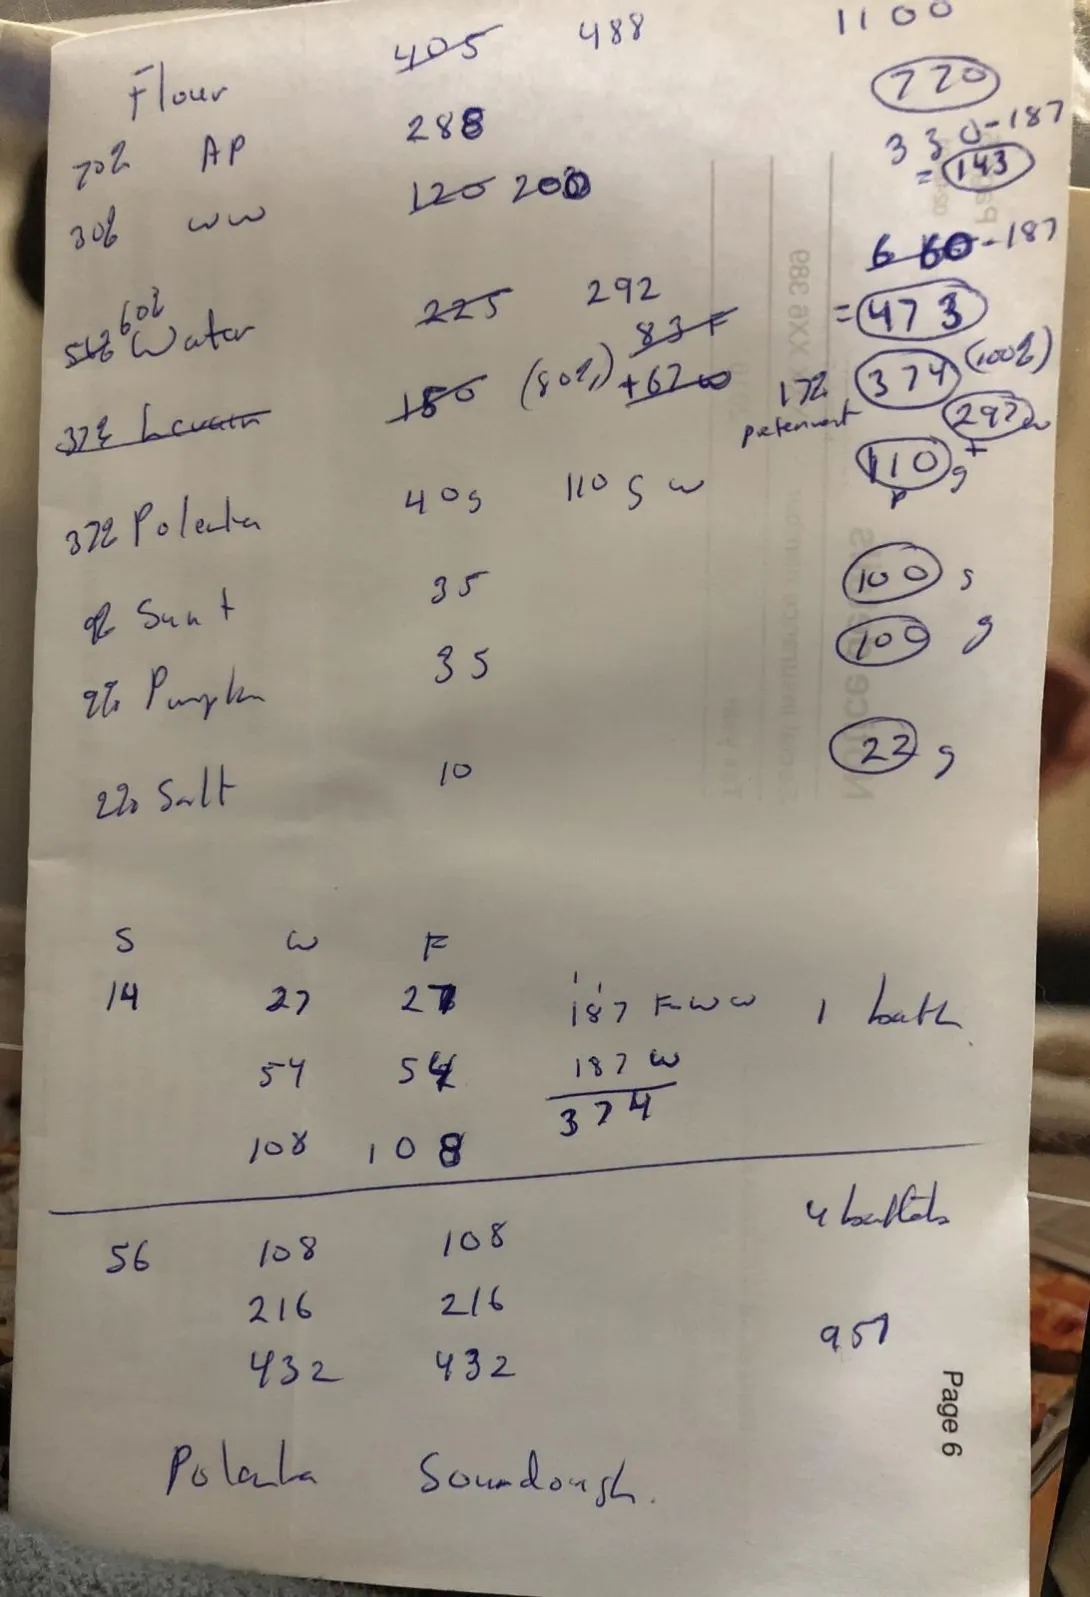 Flour 405 488 1100
70% AP 288 770
30% WW 120 200 330-187
= 143
56% 60% Water 225 292 660-187
= 473
37% Levain 150 (80%) 83 F + 67 w 17% preferment 374 (100%)
297 w
+
37% Polenta 40g 110 g w 110 g
P
9% Sun f 35 100 g
9% Pumpkin 35 100 g
2% Salt 10 22 g
S W F
14 27 27 187 F WW 1 batch
54 54 187 W
108 108 374
56 108 108 4 batch
216 216
432 432 957
Polenta Sourdough.
Page 6